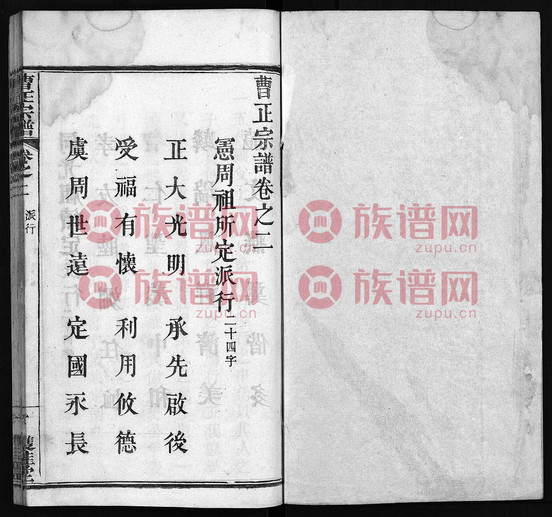 曹正宗譜卷之二
憲周祖所定派行二十四字
正大光明 承先啟後
受福有懷 利用攸德
虞周世遠 定國永長
曹正宗譜
卷之二
派行
雙桂堂
族谱网
zupu.cn
族谱网
zupu.cn
族谱网
zupu.cn
族谱网
zupu.cn